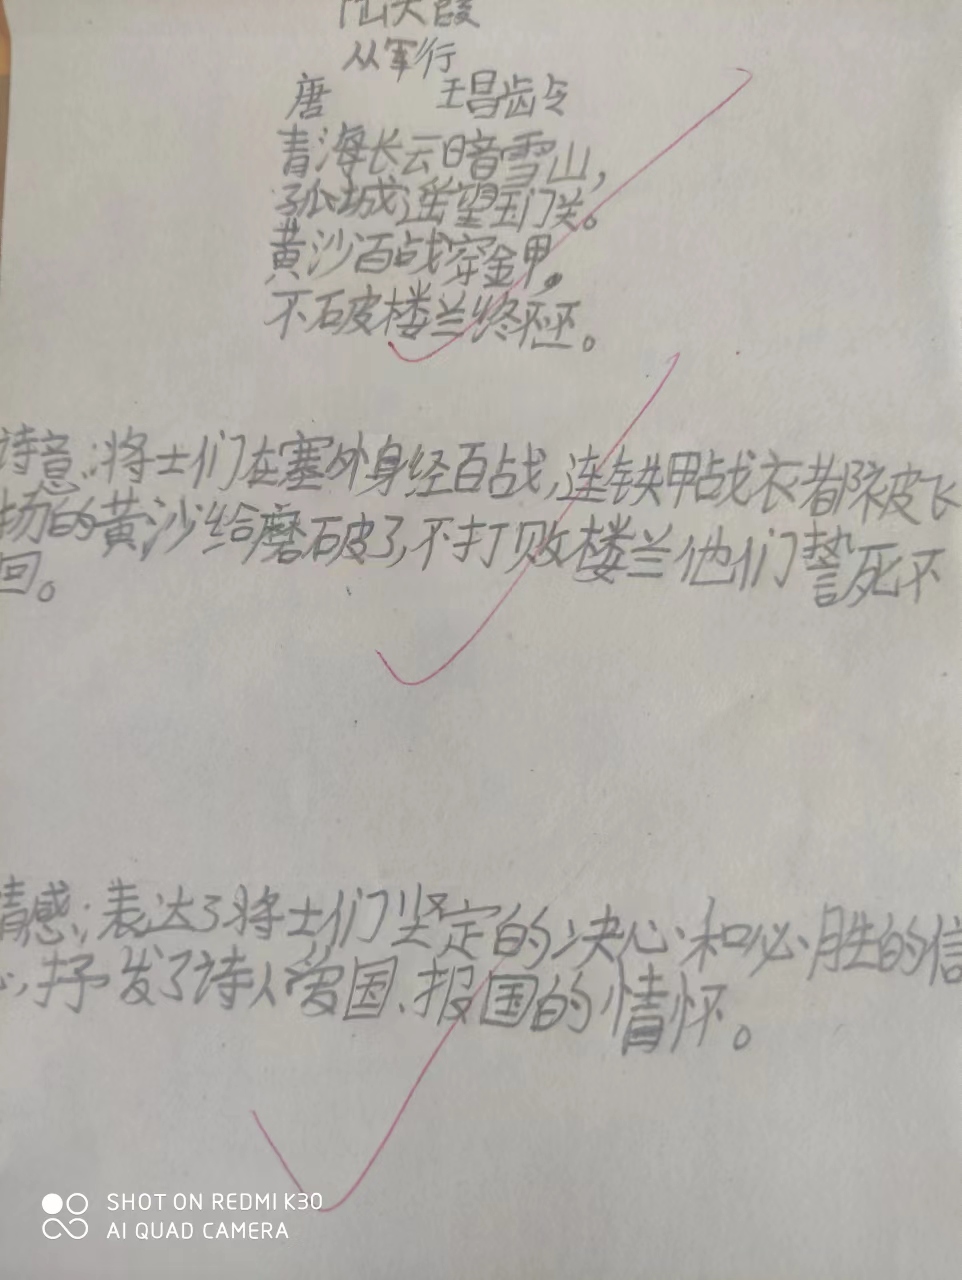 陆天霞
从军行
唐 王昌龄
青海长云暗雪山,
孤城遥望玉门关。
黄沙百战穿金甲,
不破楼兰终不还。
诗意:将士们在塞外身经百战,连铁甲战衣都被飞
扬的黄沙给磨破了,不打败楼兰他们誓死不
回。
情感:表达了将士们坚定的决心和必胜的信
心,抒发了诗人爱国、报国的情怀。
SHOT ON REDMI K30
AI QUAD CAMERA